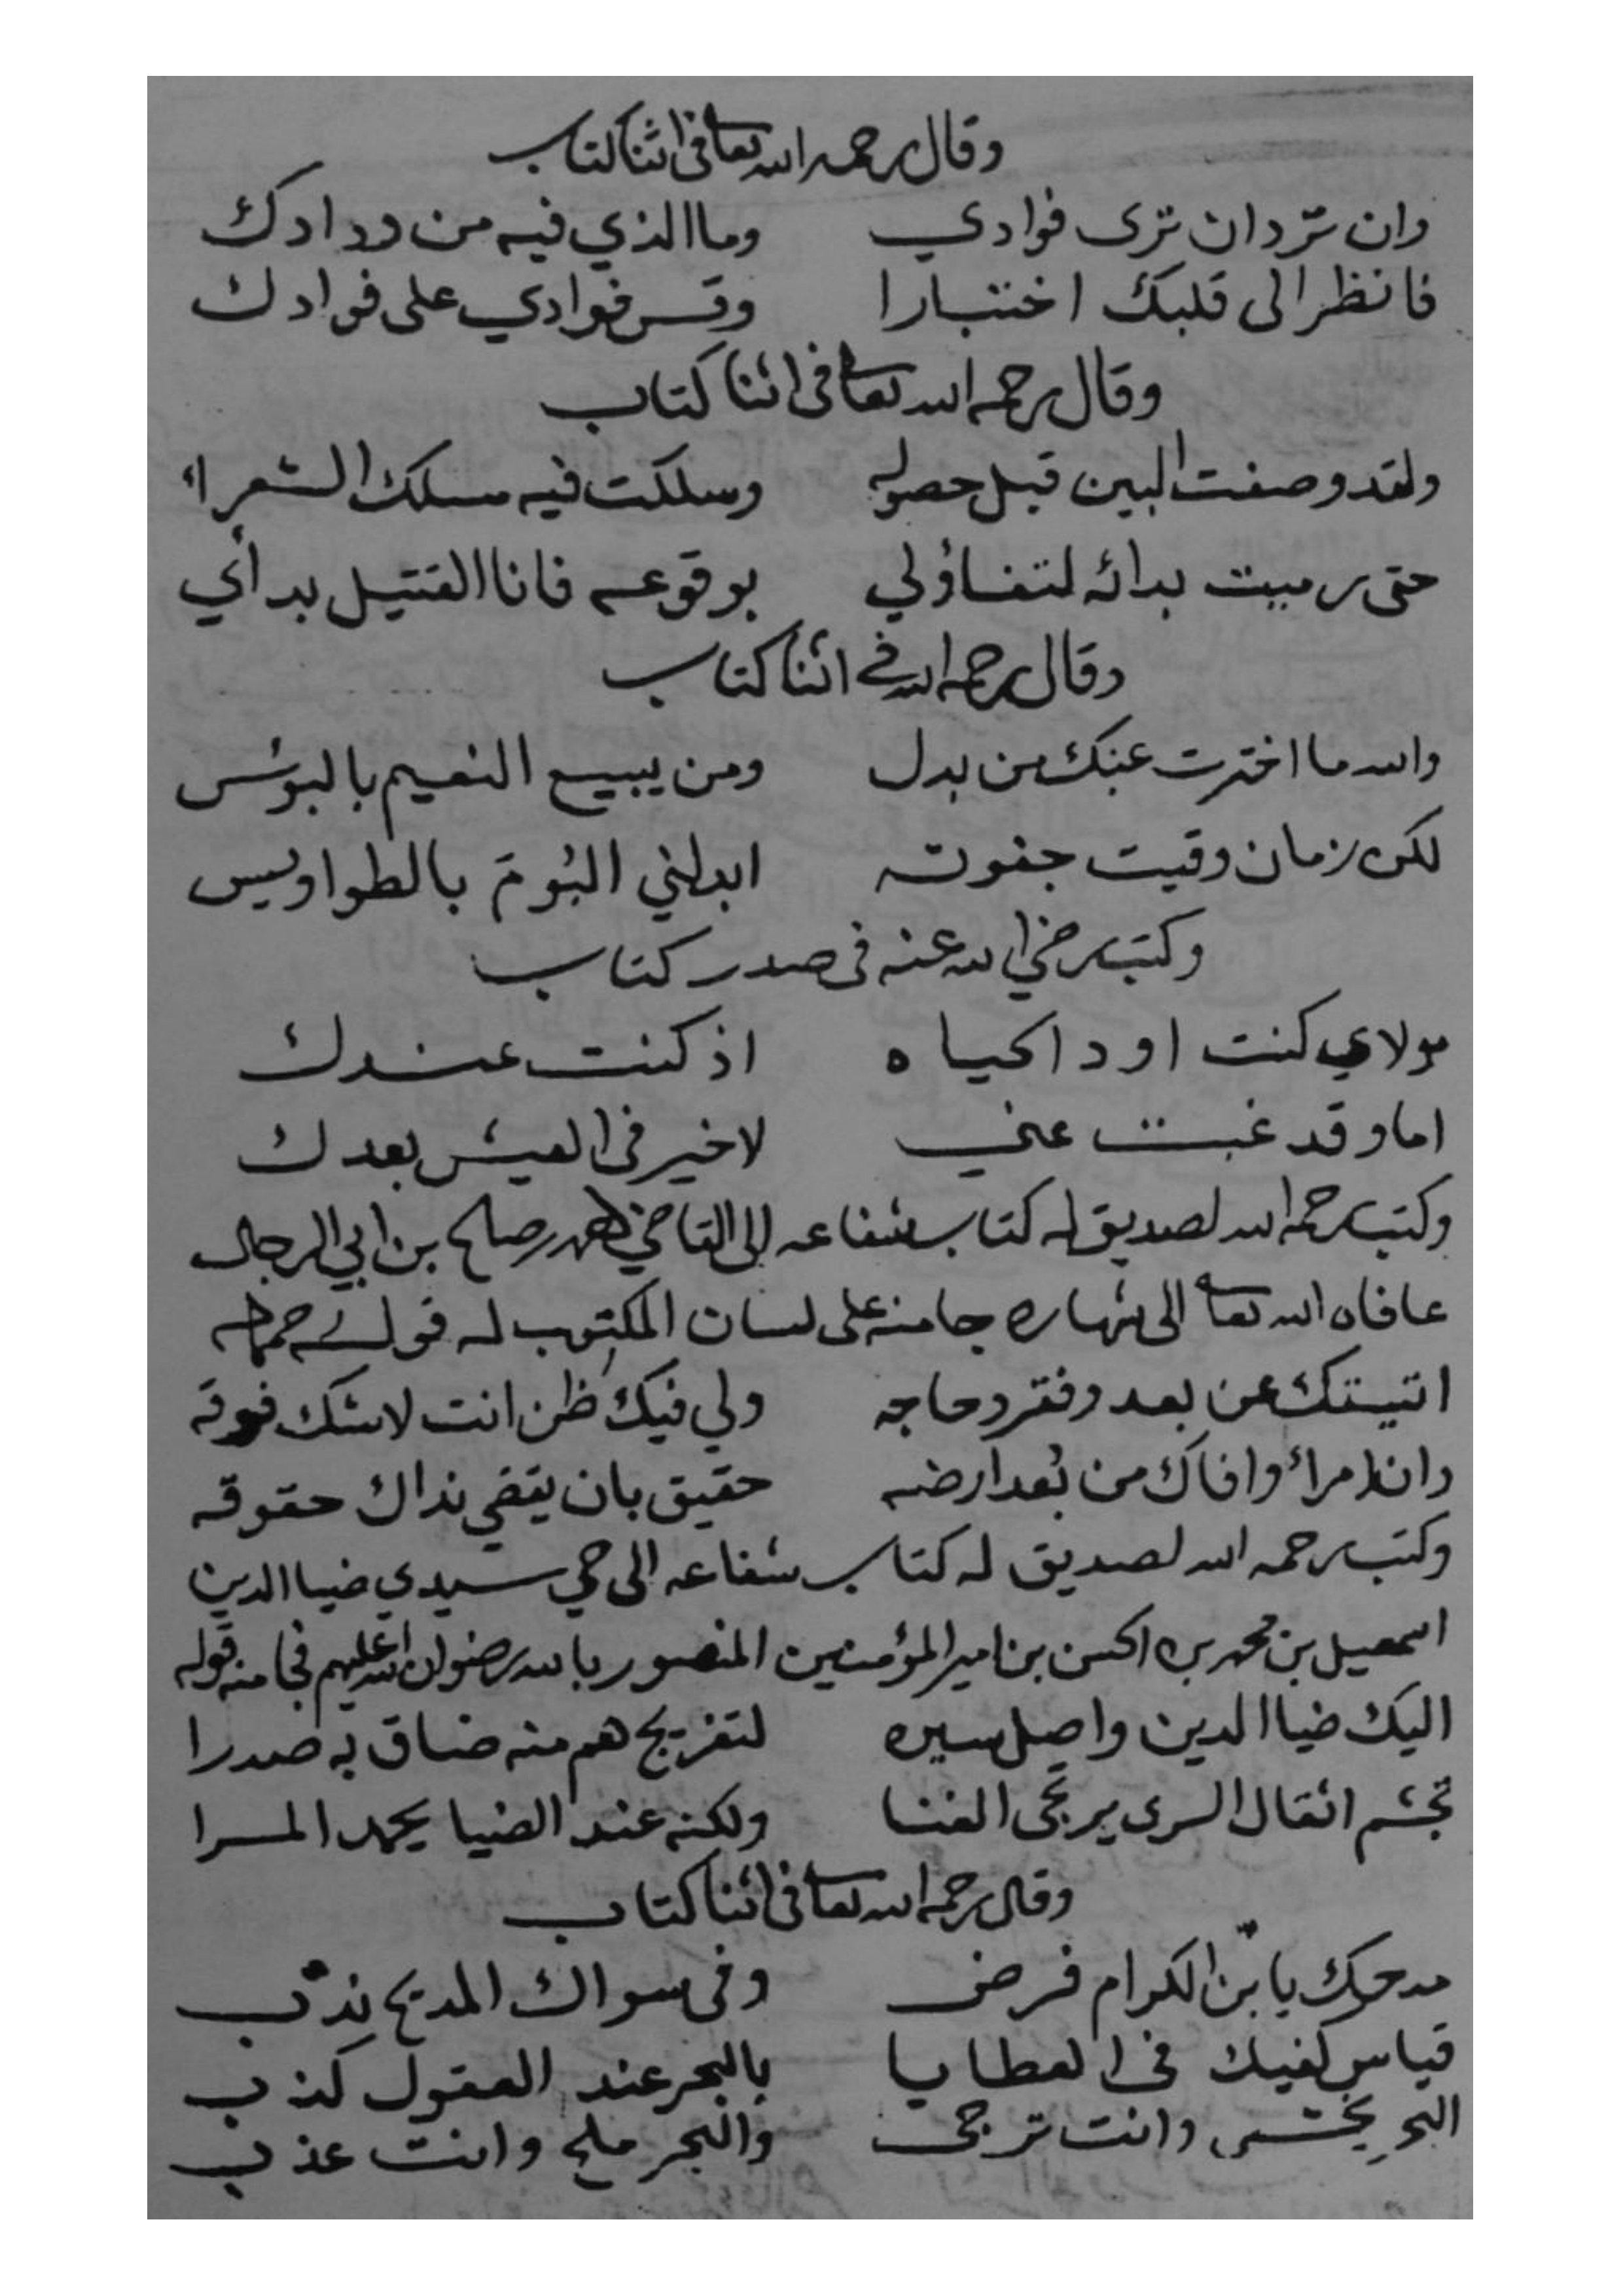 وقال رحمه الله تعالى في اثنا كتاب
وان ترد ان ترى فوادي وما الذي فيه من ودادك
فانظر الى قلبك اختبارا وقس فوادي على فوادك
وقال رحمه الله تعالى في اثنا كتاب
ولقد وصفت البين قبل حصوله وسلكت فيه مسلك الشعراء
حتى رميت بدائه لتفاؤلي بوقوعه فانا القتيل بدائي
وقال رحمه الله في اثنا كتاب
والله ما اخترت عنك من بدل ومن يبيع النعيم بالبوئس
لكن زمان وقيت جفوته ابدلني البُومَ بالطواويس
وكتب رضي الله عنه في صدر كتاب
مولاي كنت اود الحياه اذ كنت عندك
اما وقد غبت عني لا خير في العيش بعدك
وكتب رحمه الله لصديق له كتاب شفاعه الى القاضي صلح بن ابي الرجال
عافاه الله تعالى الى شهاره جا منه على لسان المكتوب له قوله
اتيتك عن بعد وفقر وحاجه ولي فيك ظن انت لا شك فوقه
وان امراً وافاك من بُعد ارضه حقيق بان يقضي نداك حقوقه
وكتب رحمه الله لصديق له كتاب شفاعه الى حي سيدي ضيا الدين
اسمعيل بن محمد بن الحسن بن امير المؤمنين المنصور بالله رضوان الله عليهم فجا منه قوله
اليك ضيا الدين واصل سيره لتفريج هم منه ضاق به صدرا
تجشم اثقال السرى يرتجى الغنا ولكنه عند الضيا يحمد المسرا
وقال رحمه الله تعالى في اثنا كتاب
مدحك يا بن الكرام فرض وفي سواك المديح ندب
قياس كفيك في العطايا بالبحر عند العقول كذب
البحر يخشى وانت ترجى والبحر ملح وانت عذب